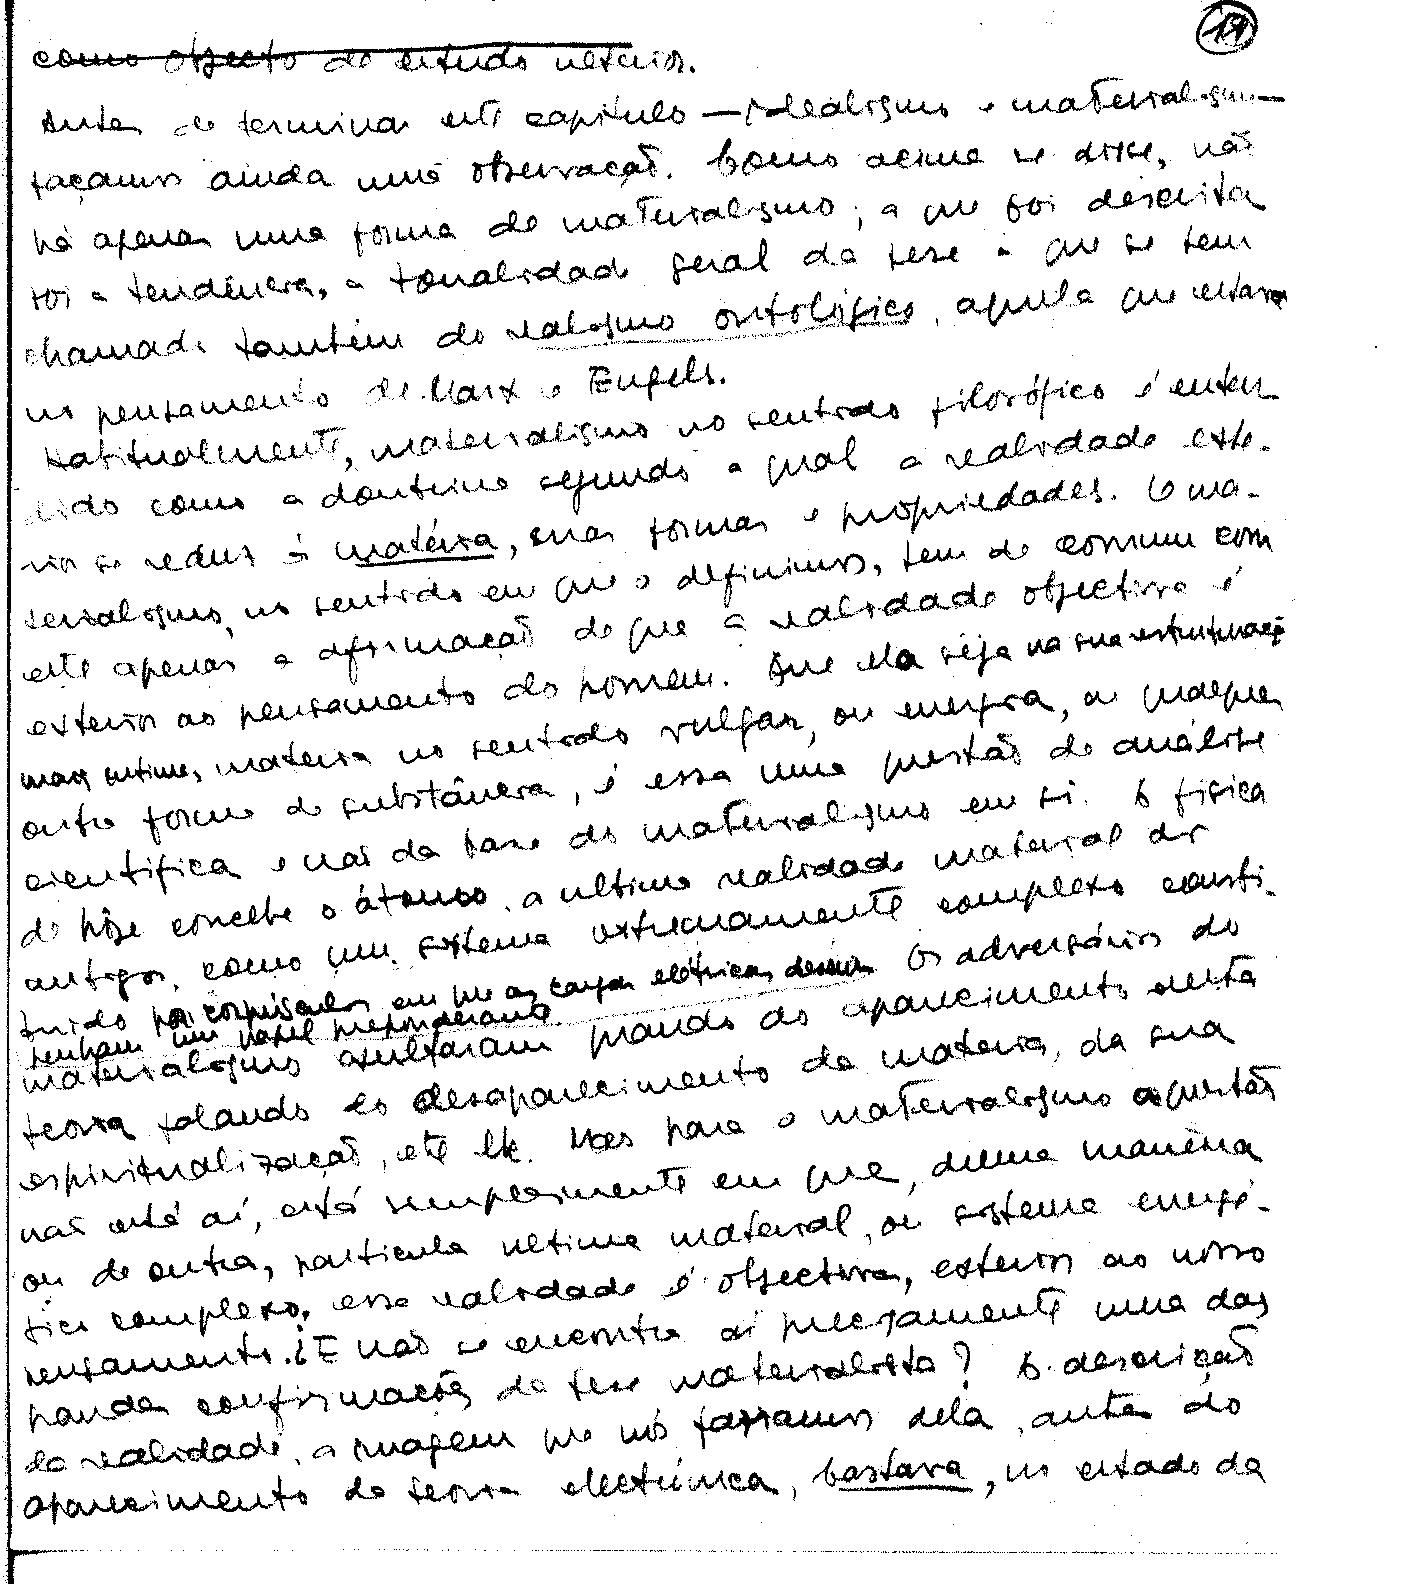 19
como objecto de estudo ulterior.
Antes de terminar este capítulo — idealismo e materialismo —
façamos ainda uma observação. Como acima se disse, não
há apenas uma forma de materialismo; a que foi descrita
foi a tendência, a tonalidade geral da tese a que se tem
chamado também de realismo ontológico, aquela que estava
no pensamento de Marx e Engels.
Habitualmente, materialismo no sentido filosófico é enten-
dido como a doutrina segundo a qual a realidade exte-
rior se reduz à matéria, suas formas e propriedades. O ma-
terialismo, no sentido em que o definimos, tem de comum com
este apenas a afirmação de que a realidade objectiva é
exterior ao pensamento do homem. Que ela seja na sua estruturação
mais íntima, materia no sentido vulgar, ou energia, ou qualquer
outra forma de substância, é essa uma questão de análise
científica e não da base do materialismo em si. A física
de hoje concebe o átomo, a ultima realidade material dos
antigos, como um sistema extremamente complexo consti-
tuido por corpúsculos em que as cargas eléctricas
tenham um papel preponderante. Os adversários do
materialismo exultaram quando do aparecimento desta
teoria falando do desaparecimento da materia, da sua
espiritualização, etc etc. Mas para o materialismo a questão
não está aí, está simplesmente em que, duma maneira
ou de outra, particula ultima material, ou sistema energé-
tico complexo, essa realidade é objectiva, exterior ao nosso
pensamento. E não se encontra aí precisamente uma das
grandes confirmações da tese materialista? A descrição
da realidade, a imagem que nós faziamos dela, antes do
aparecimento da teoria electrónica, bastava, no estado da